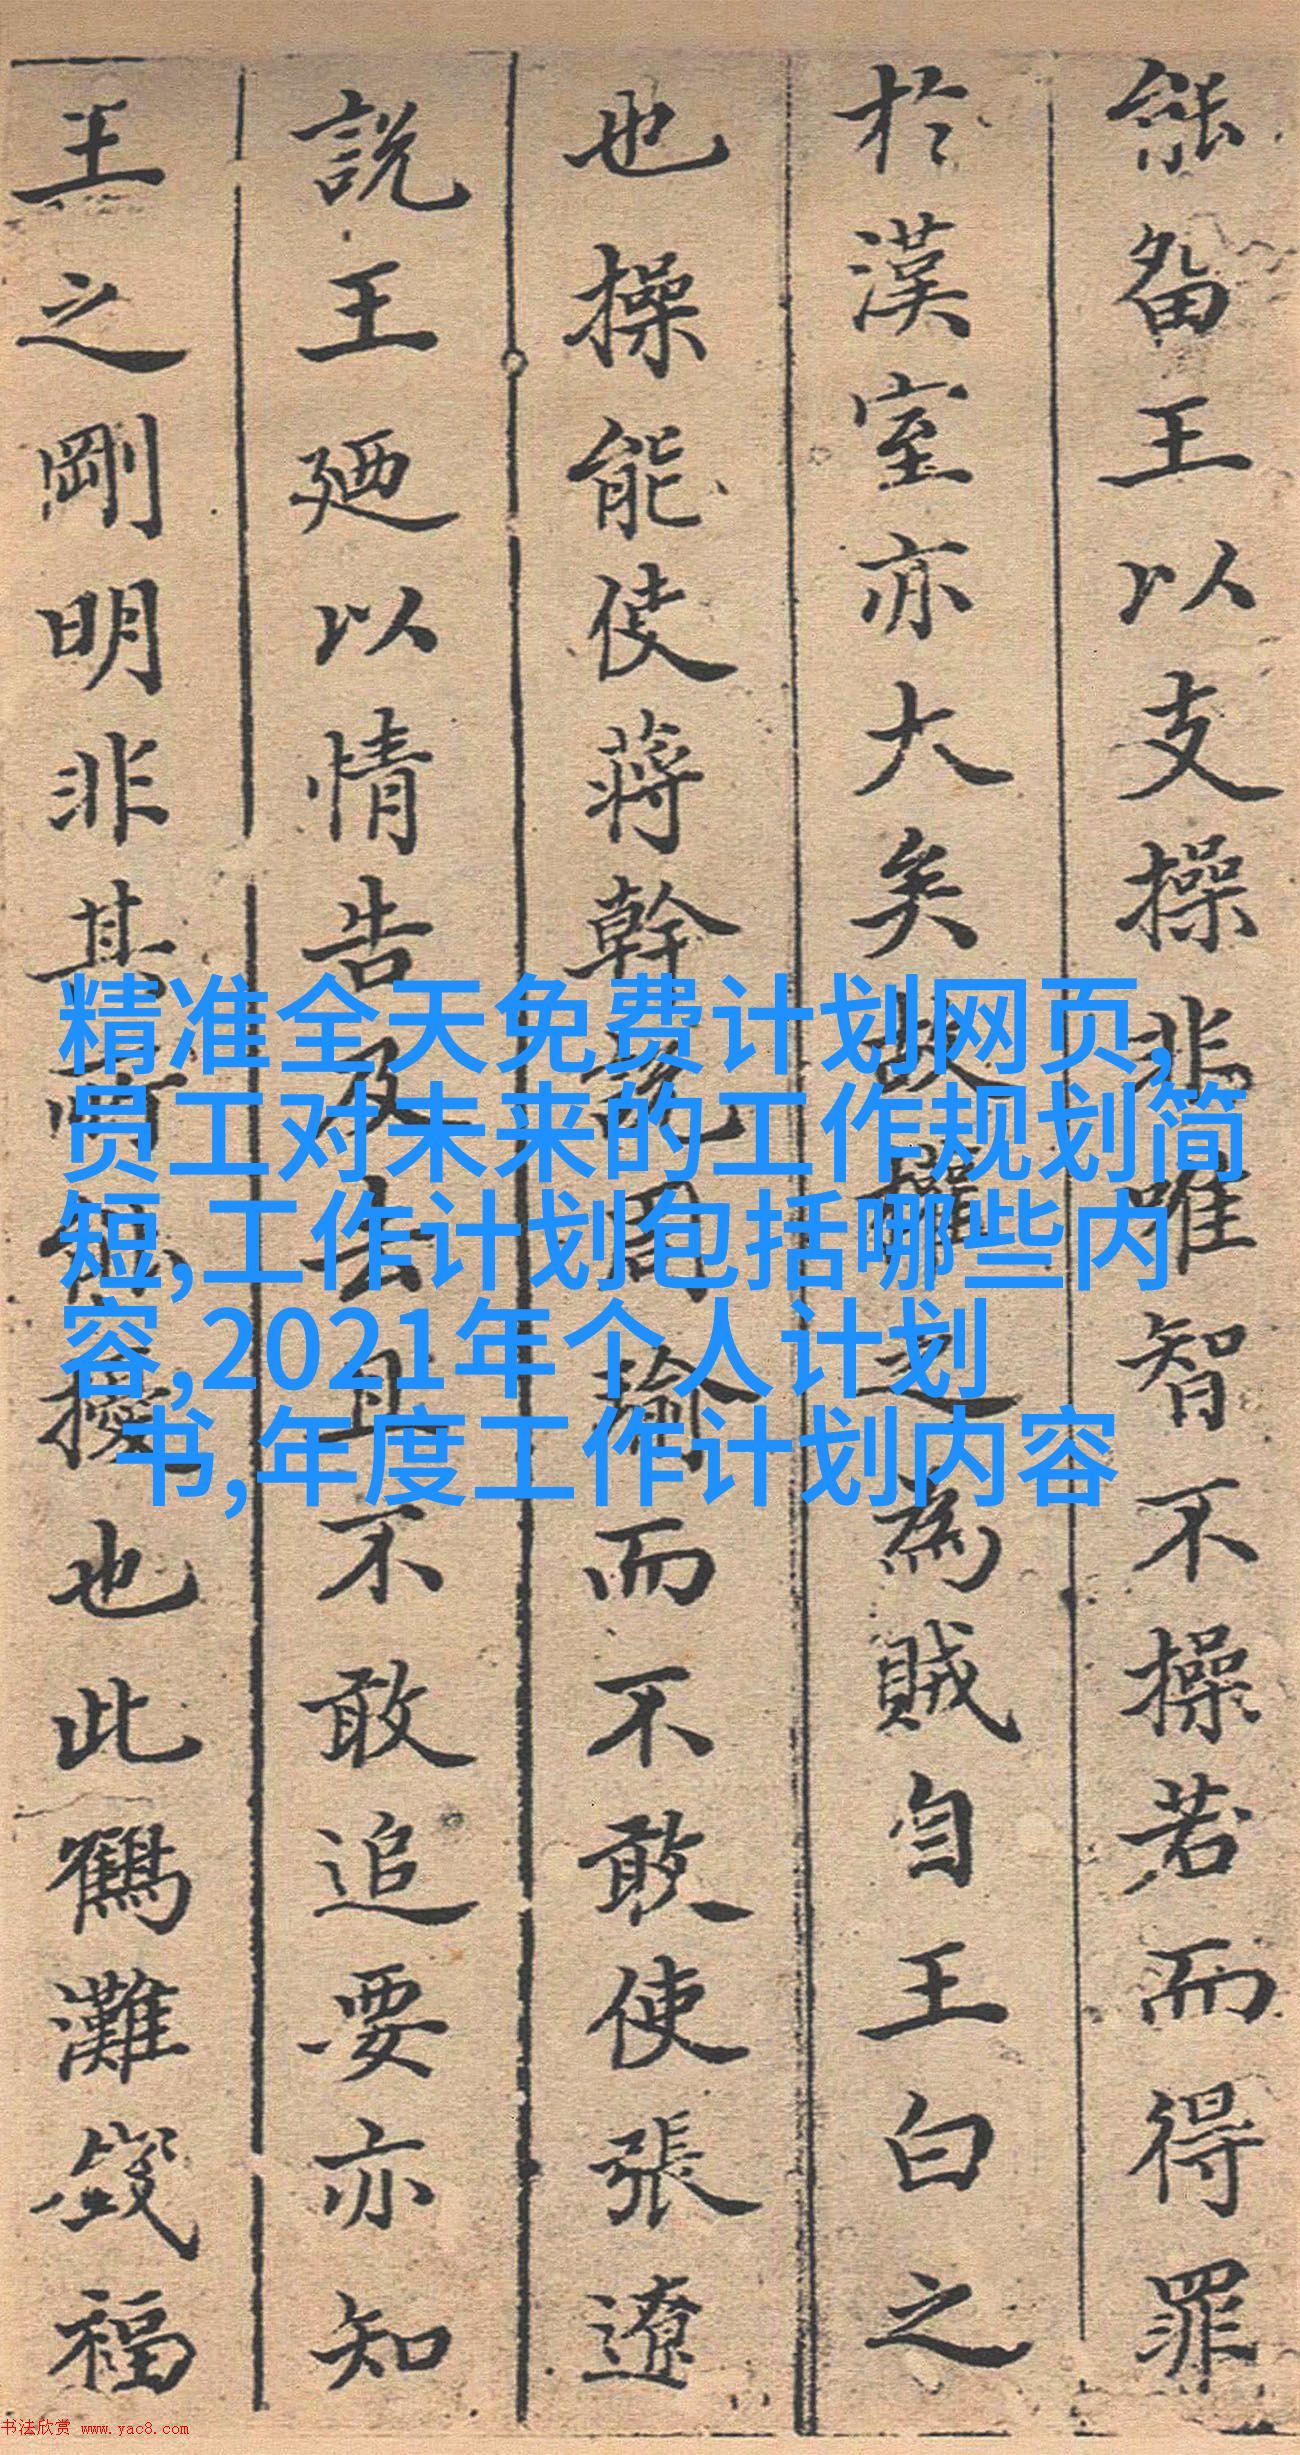 能留王以支操非唯智不操若而得罪
於漢室亦大矣故權之為賊自王白之
也操能使蔣幹說周瑜而不敢使張遼
說王廼以情告及去且不敢追要亦知
王之剛明非其所能撓也此鶴灘錢福
精准全天免费计划网页,
员工对未来的工作规划简
短,工作计划包括哪些内
容,2021年个人计划
书,年度工作计划内容
书法欣赏 www.yac8.com